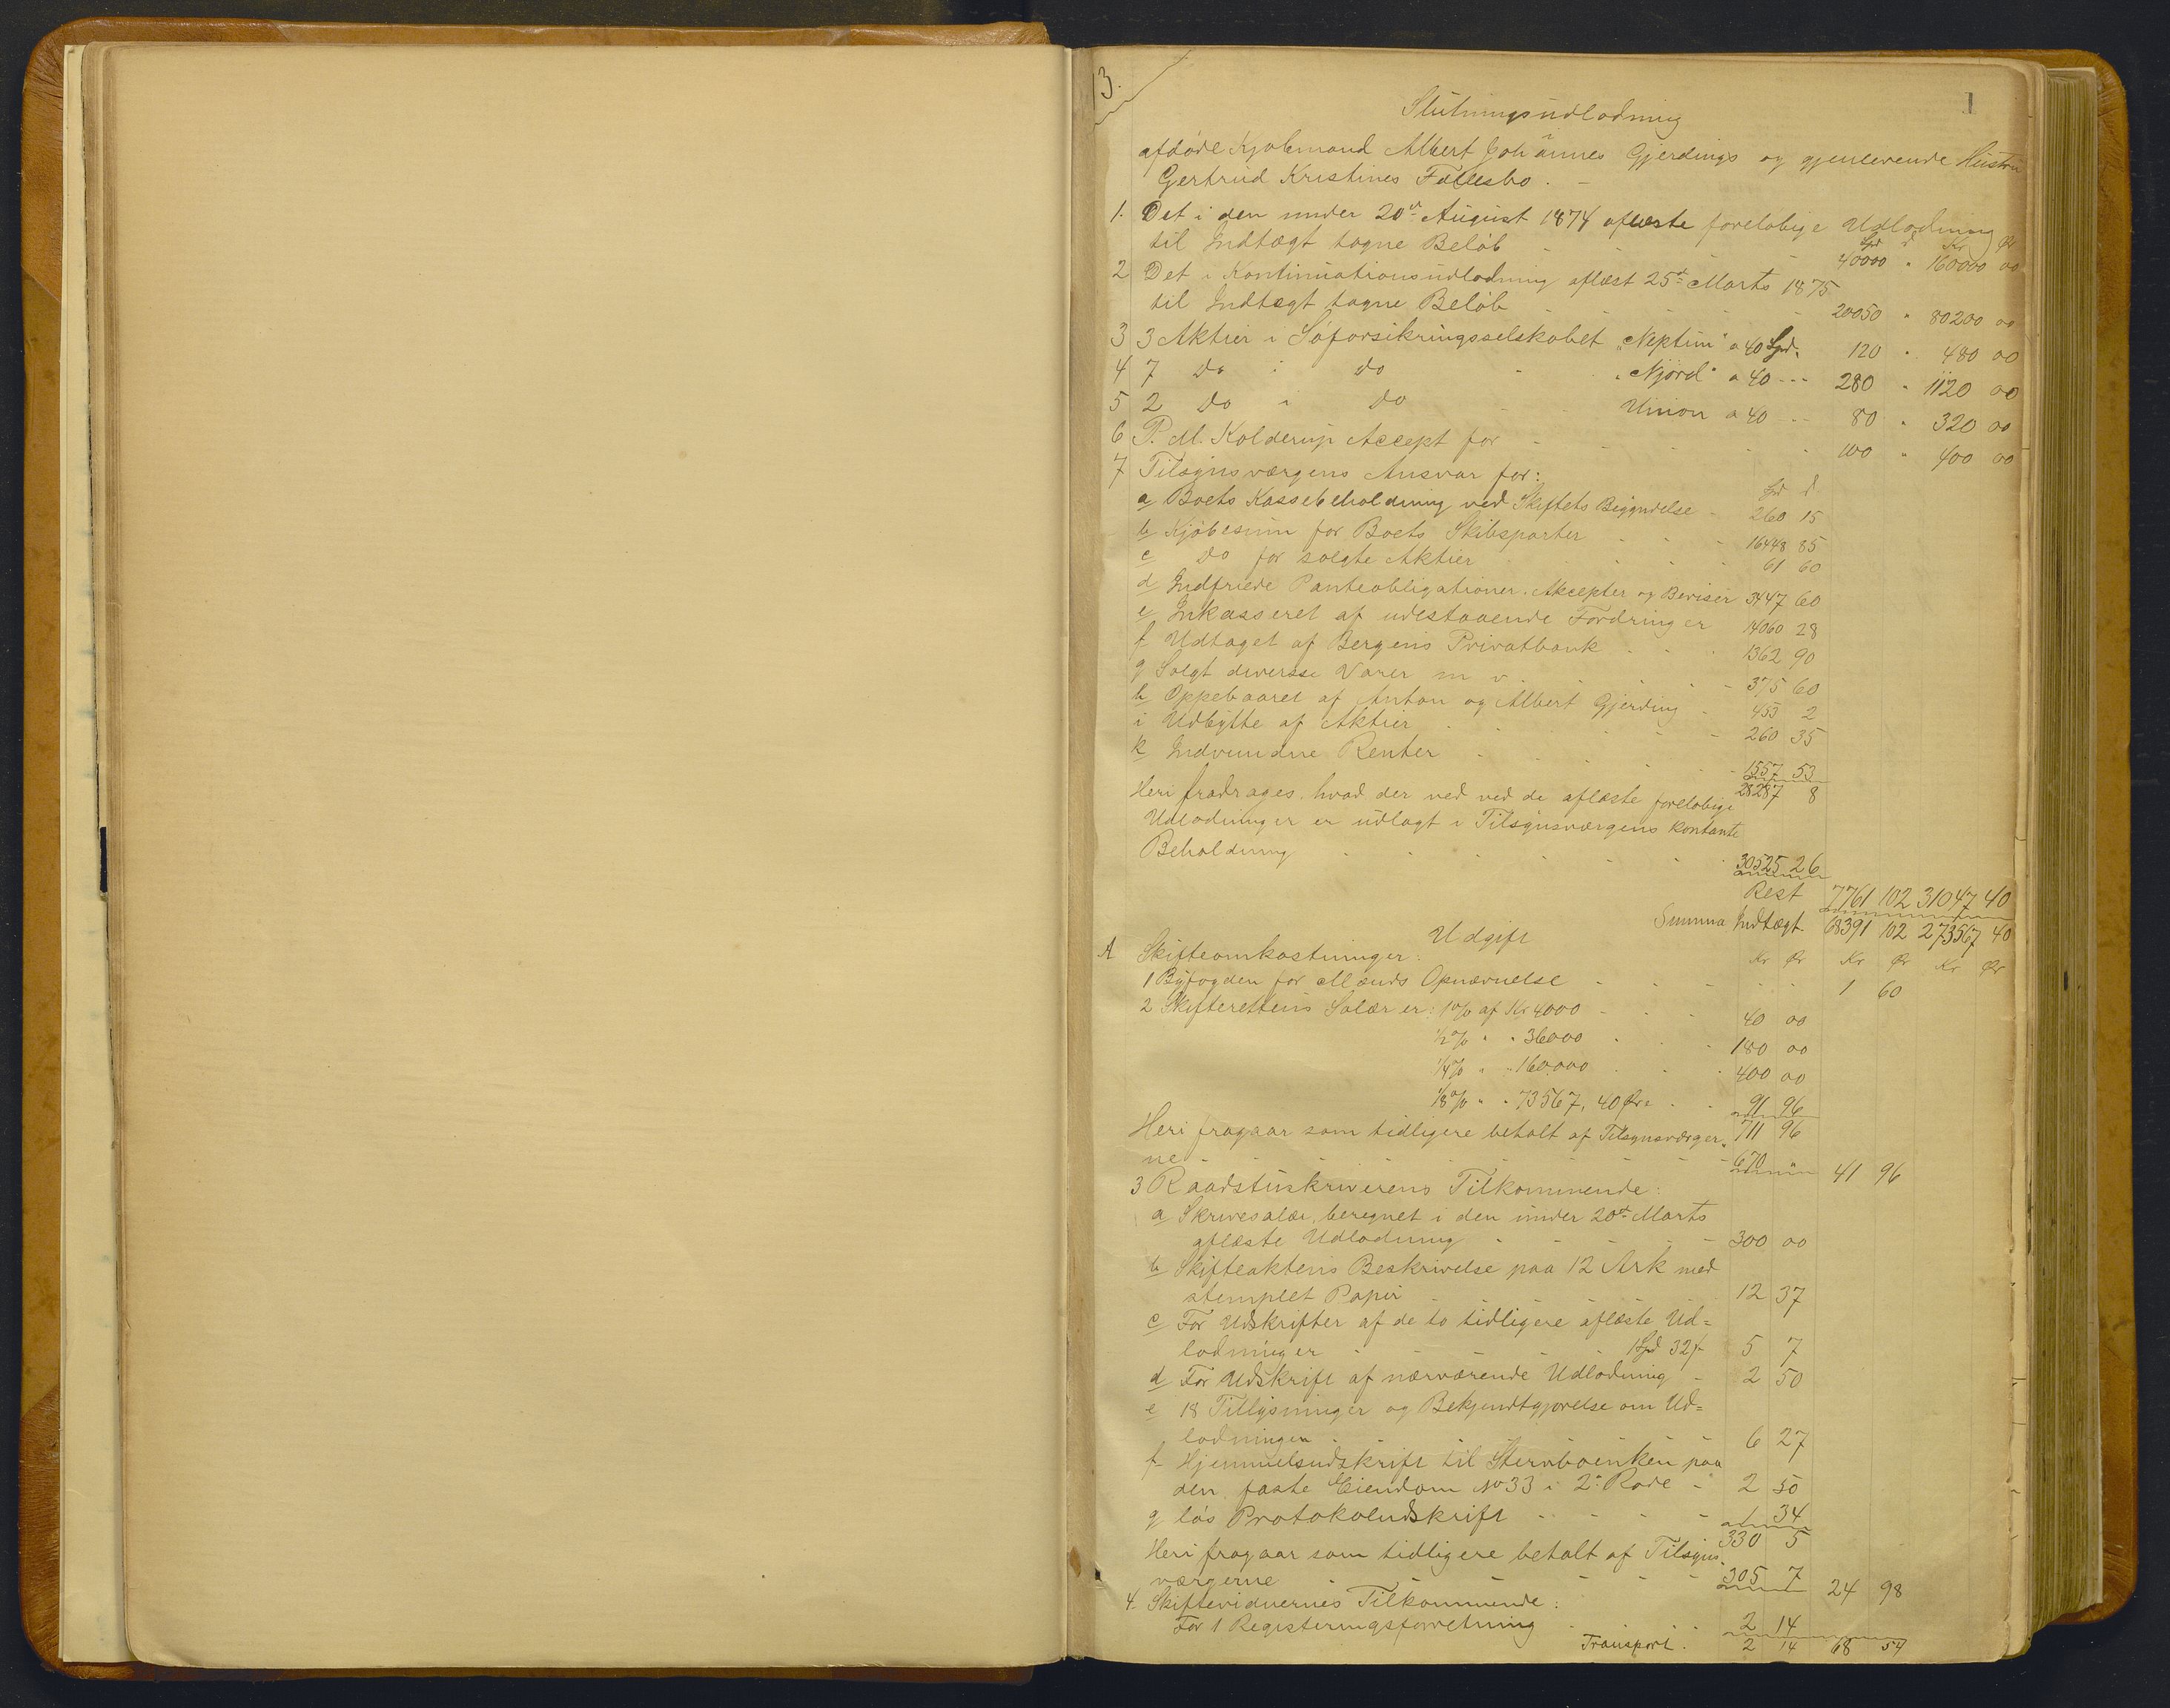 13.
1
Slutningsudlodning
afdøde Kjøbmand Albert Johannes Gjerdings og gjenlevende Hustru
Gertrud Kristines Fællesbo. -
1. Det i den under 20de August 1874 aflæste foreløbige Udlodning
Spd d Kr Ør
til Indtægt tagne Beløb - - - 40000 " 160000 00
2 Det i Kontinuationsudlodning aflæst 25de Marts 1875
til Indtægt tagne Beløb - - - 20050 " 80200 00
3 3 Aktier i Søforsikringsselskabet "Neptun" a 40 Spd. 120 " 480 00
4 7 Do i do - "Njord" a 40 --- 280 " 1120 00
5 2 Do i do - - Union a 40 --- 80 " 320 00
6 P. M. Kolderup Accept for - - - 100 " 400 00
7 Tilsynsværgens Ansvar for:
Spd d
a Boets Kassebeholdning ved Skiftets Begyndelse - 260 15
b Kjøbesum for Boets Skibsparter - - - 16448 85
c Do for solgte Aktier - - - 61 60
d Indfriede Panteobligationer, Akcepter og Beviser 3447 60
e Inkasseret af udestaaende Fordringer 14060 28
f Udtaget af Bergens Privatbank - - - 1362 90
g Solgt diverse Varer m v - - - 375 60
h Oppebaaret af Anton og Albert Gjerding - 453 2
i Udbytte af Aktier - - - 260 35
k Indvundne Renter - - - 1557 53
28287 8
Heri fradrages hvad der ved ved de aflæste foreløbige
Udlodninger er udlagt i Tilsynsværgens kontante
Beholdning - - - 30525 26
Rest 7761 102 31047 40
Summa Indtægt 68391 102 273567 40
Udgift
Kr Ør Kr Ør Kr Ør
A Skifteomkostninger:
1 Byfogden for Mænds Opnævnelse - - - 1 60
2 Skifterettens Salær er: 1% af Kr 4000 - - - 40 00
1/2% " " 36000 - - 180 00
1/4% " " 160,000 - - 400 00
1/8% " " 73567, 40 Øre - - 91 96
711 96
Heri fragaar som tidligere betalt af Tilsynsværger-
ne - - - 670 " 41 96
3 Raadstuskriverens Tilkommende:
a Skrivesalær, beregnet i den under 20de Marts
aflæste Udlodning - - - 300 00
b Skifteaktens Beskrivelse paa 12 Ark med
stemplet Papir - - - 12 37
c For Udskrifter af de to tidligere aflæste Ud=
lodninger - - - 1 Spd 32 f 5 7
d For Udskrift af nærværende Udlodning - 2 50
e 18 Tillysninger og Bekjendtgjørelse om Ud=
lodningen - - - 6 27
f Hjemmelsudskrift til Stervboenken paa
den faste Eiendom No 33 i 2: Rode - 2 50
g løs Protokoludskrift - - - 1 34
330 5
Heri fragaar som tidligere betalt af Tilsyns-
værgerne - - - 305 7 24 98
4. Skiftevidnernes Tilkommende:
For 1 Registeringsforretning - - - 2 14
Transport. 2 14 68 54